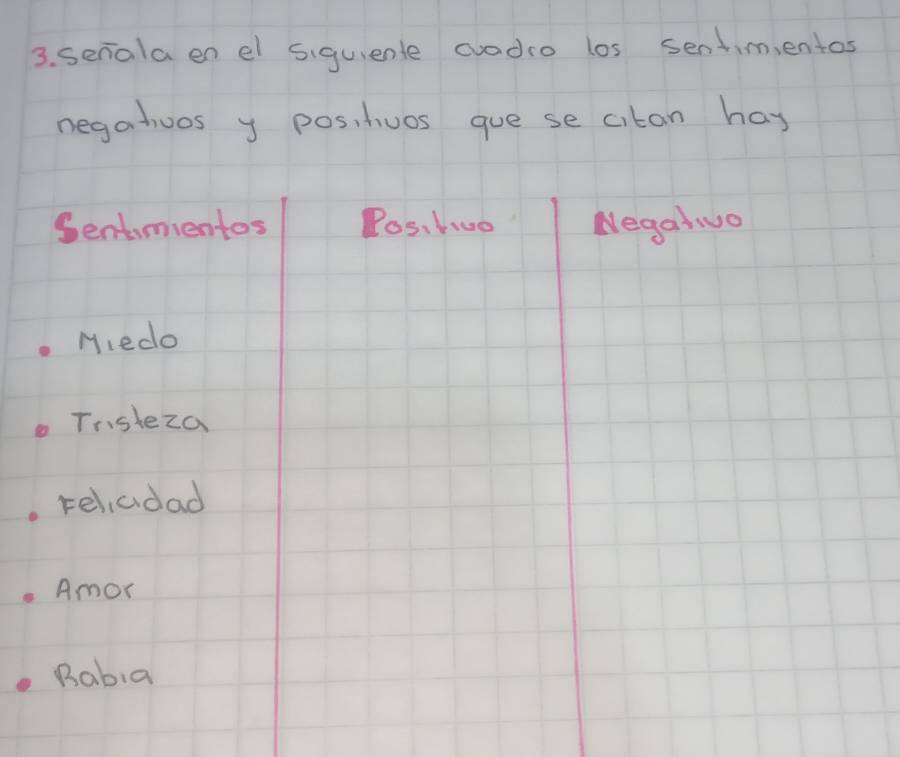 3. Señala en el siguiente cuadro los sentimientos
negativos y positivos que se citan hay
Sentimientos Positivo Negativo
• Miedo
• Tristeza
• Felicidad
• Amor
• Rabia